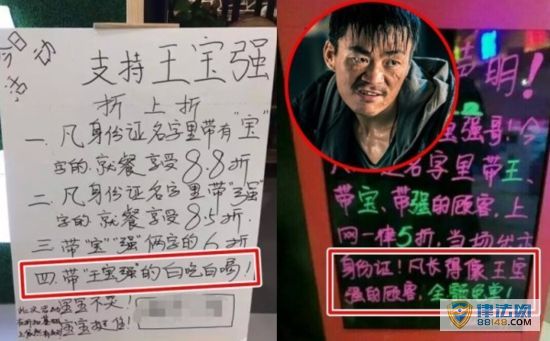 今日活动
支持王宝强
折上折
一、凡身份证名字里带有"宝"
字的,就餐享受8.8折
二、凡身份证名字里带"强"
字的,就餐享受8.5折.
三、带"宝""强"俩字的6折
四、带"王宝强"的白吃白喝!
宝宝不哭!
宝宝挺住!
声明!
宝强哥!今
名字里带王、
带宝、带强的顾客,上
网一律5折,当场出示
身份证!凡长得像王宝
强的顾客,全额免单!
律法网
88148.com